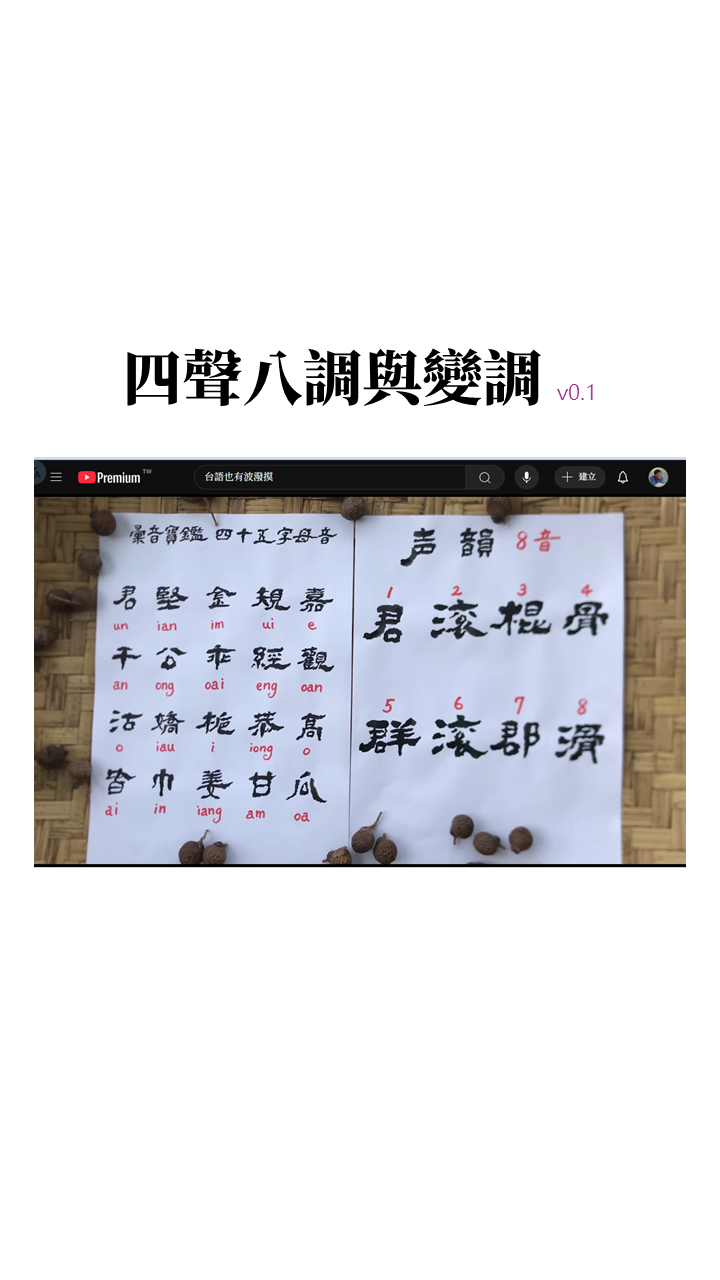 四聲八調與變調 v0.1
Premium TW
台語也有波潑摸
建立
彙音寶鑑 四十五字母音
君 堅 金 規 嘉
un ian im ui e
干 公 乖 經 觀
an ong oai eng oan
沽 嬌 梔 恭 高
o iau i iong o
皆 巾 姜 甘 瓜
ai in iang am oa
声韻 8音
1 2 3 4
君 滾 棍 骨
5 6 7 8
群 滾 郡 滑